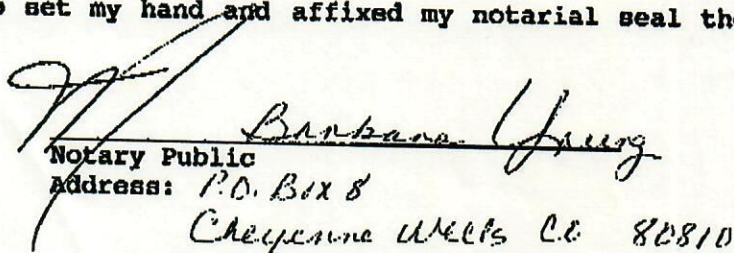 set my hand and affixed my notarial seal
Barbara Young
Notary Public
Address: P.O. Box 8
Cheyenne Wells CO 80810